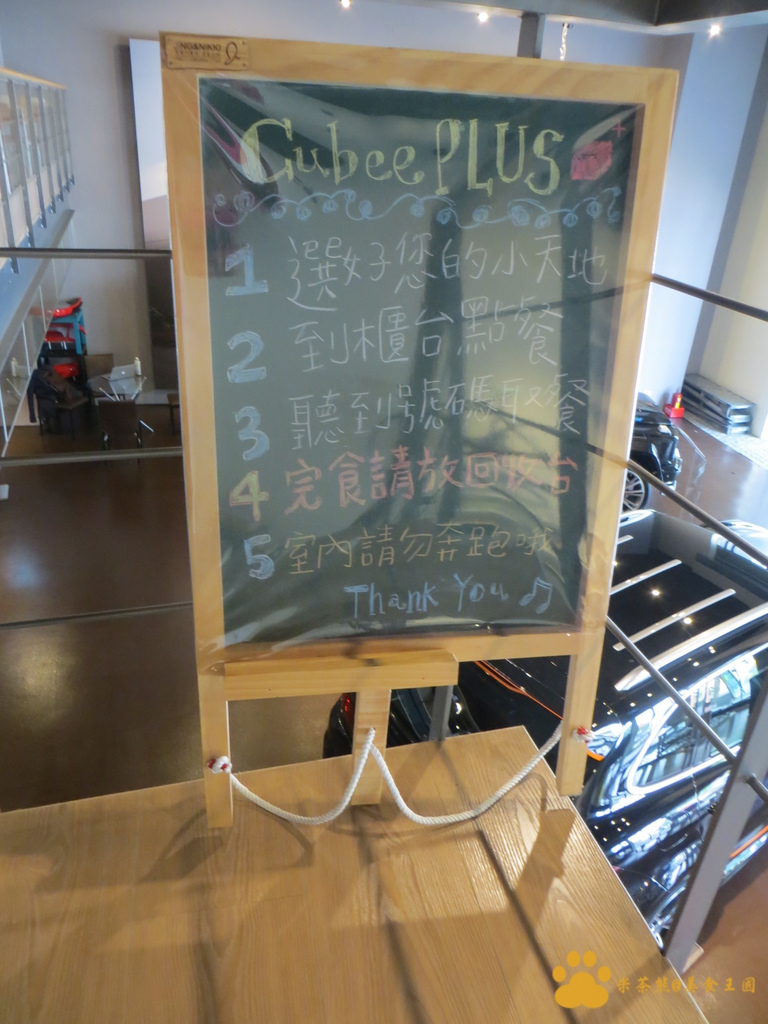 NG&NIKKI
Cubee PLUS
1 選好您的小天地
2 到櫃台點餐
3 聽到號碼取餐
4 完食請放回收台
5 室內請勿奔跑哦
Thank You ♫
米茶熊@美食王国